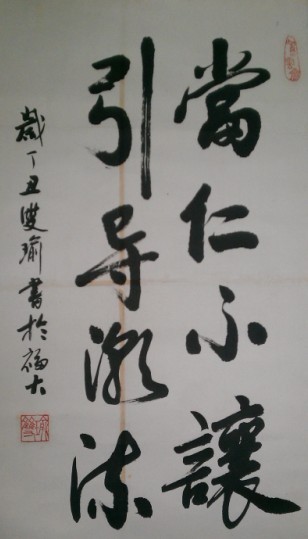 當仁不讓
引导潮流
歲丁丑雙瑜書於福大